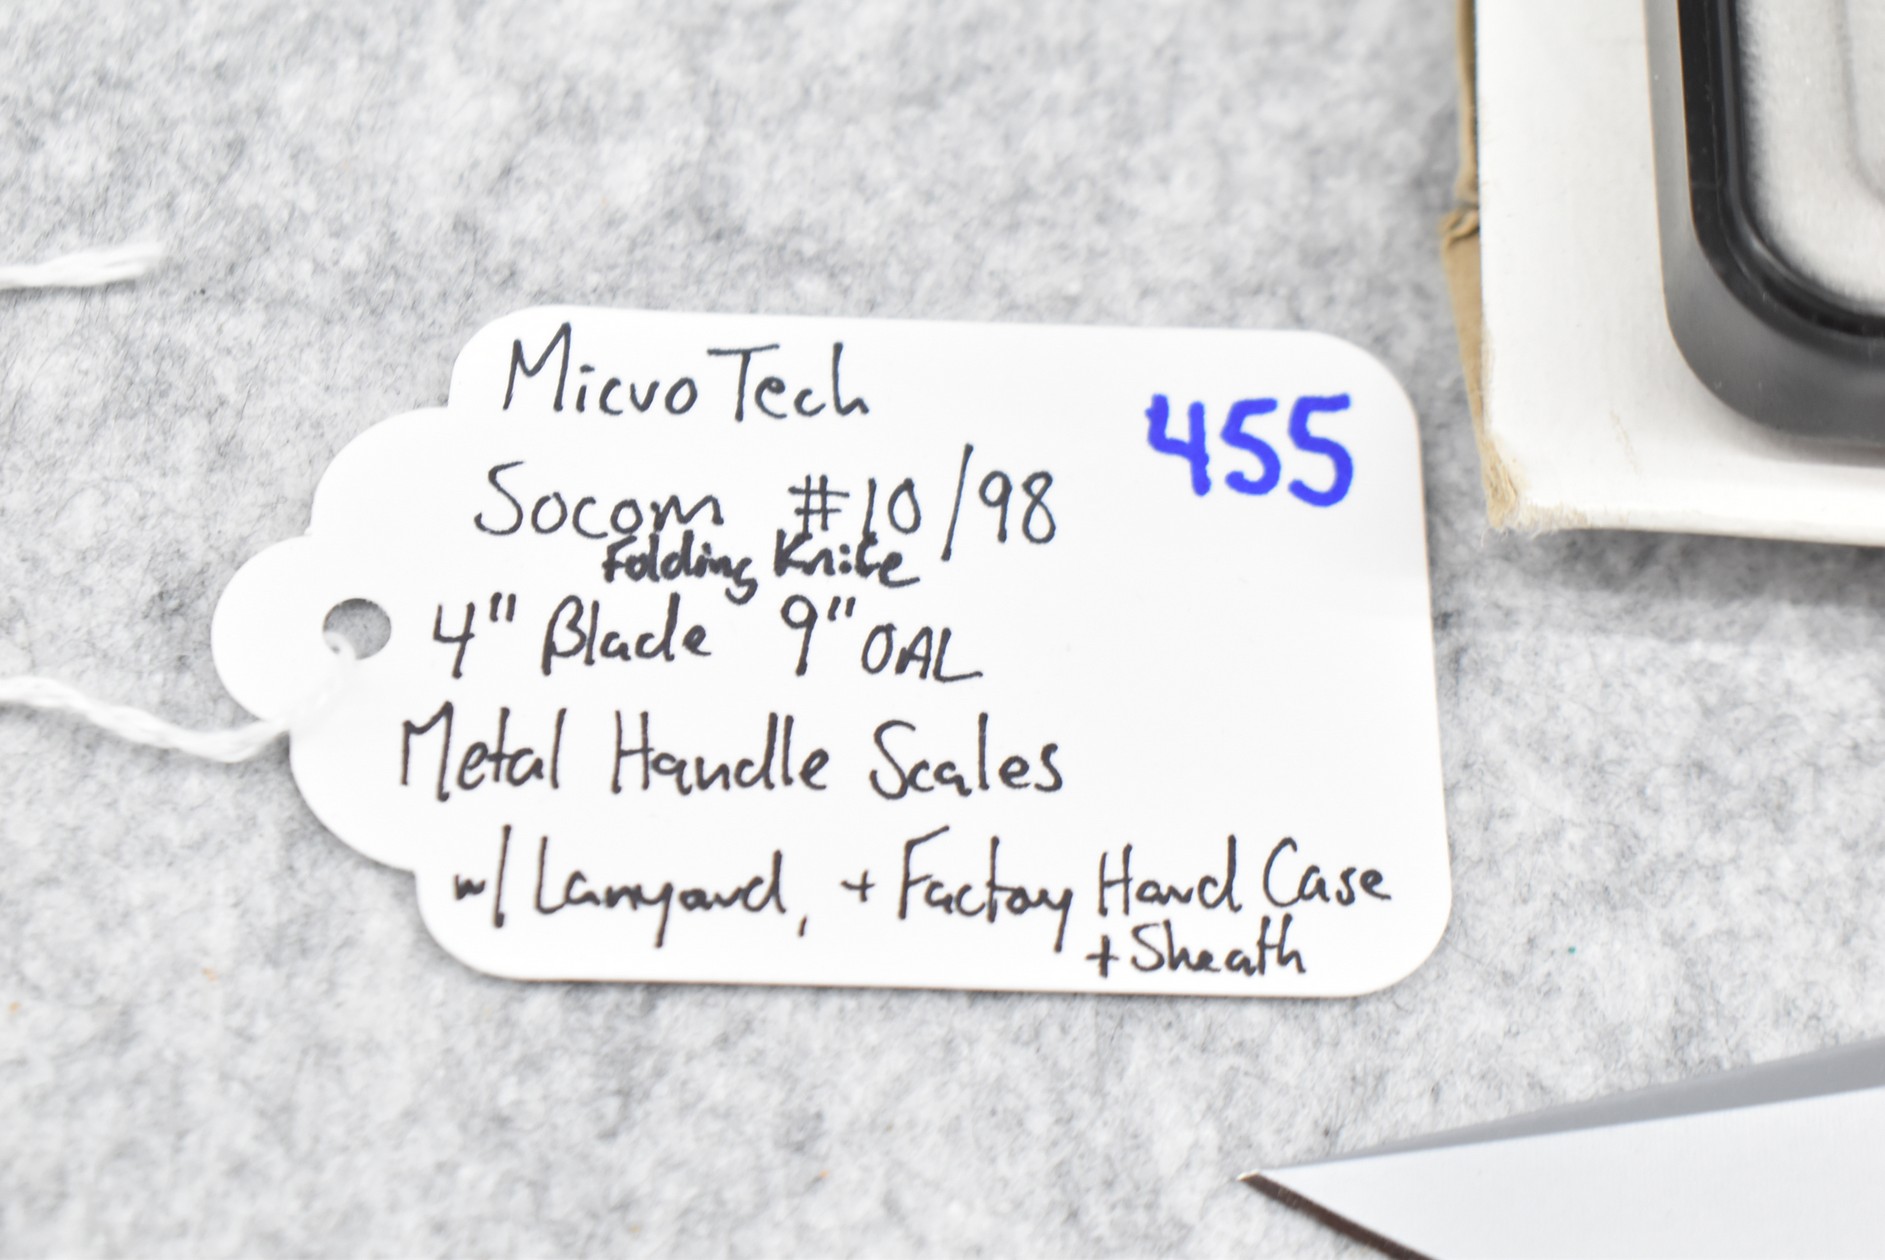 MicroTech
455
Socom #10/98
Folding Knife
4" Blade 9" OAL
Metal Handle Scales
w/ Lanyard, + Factory Hard Case
+ Sheath